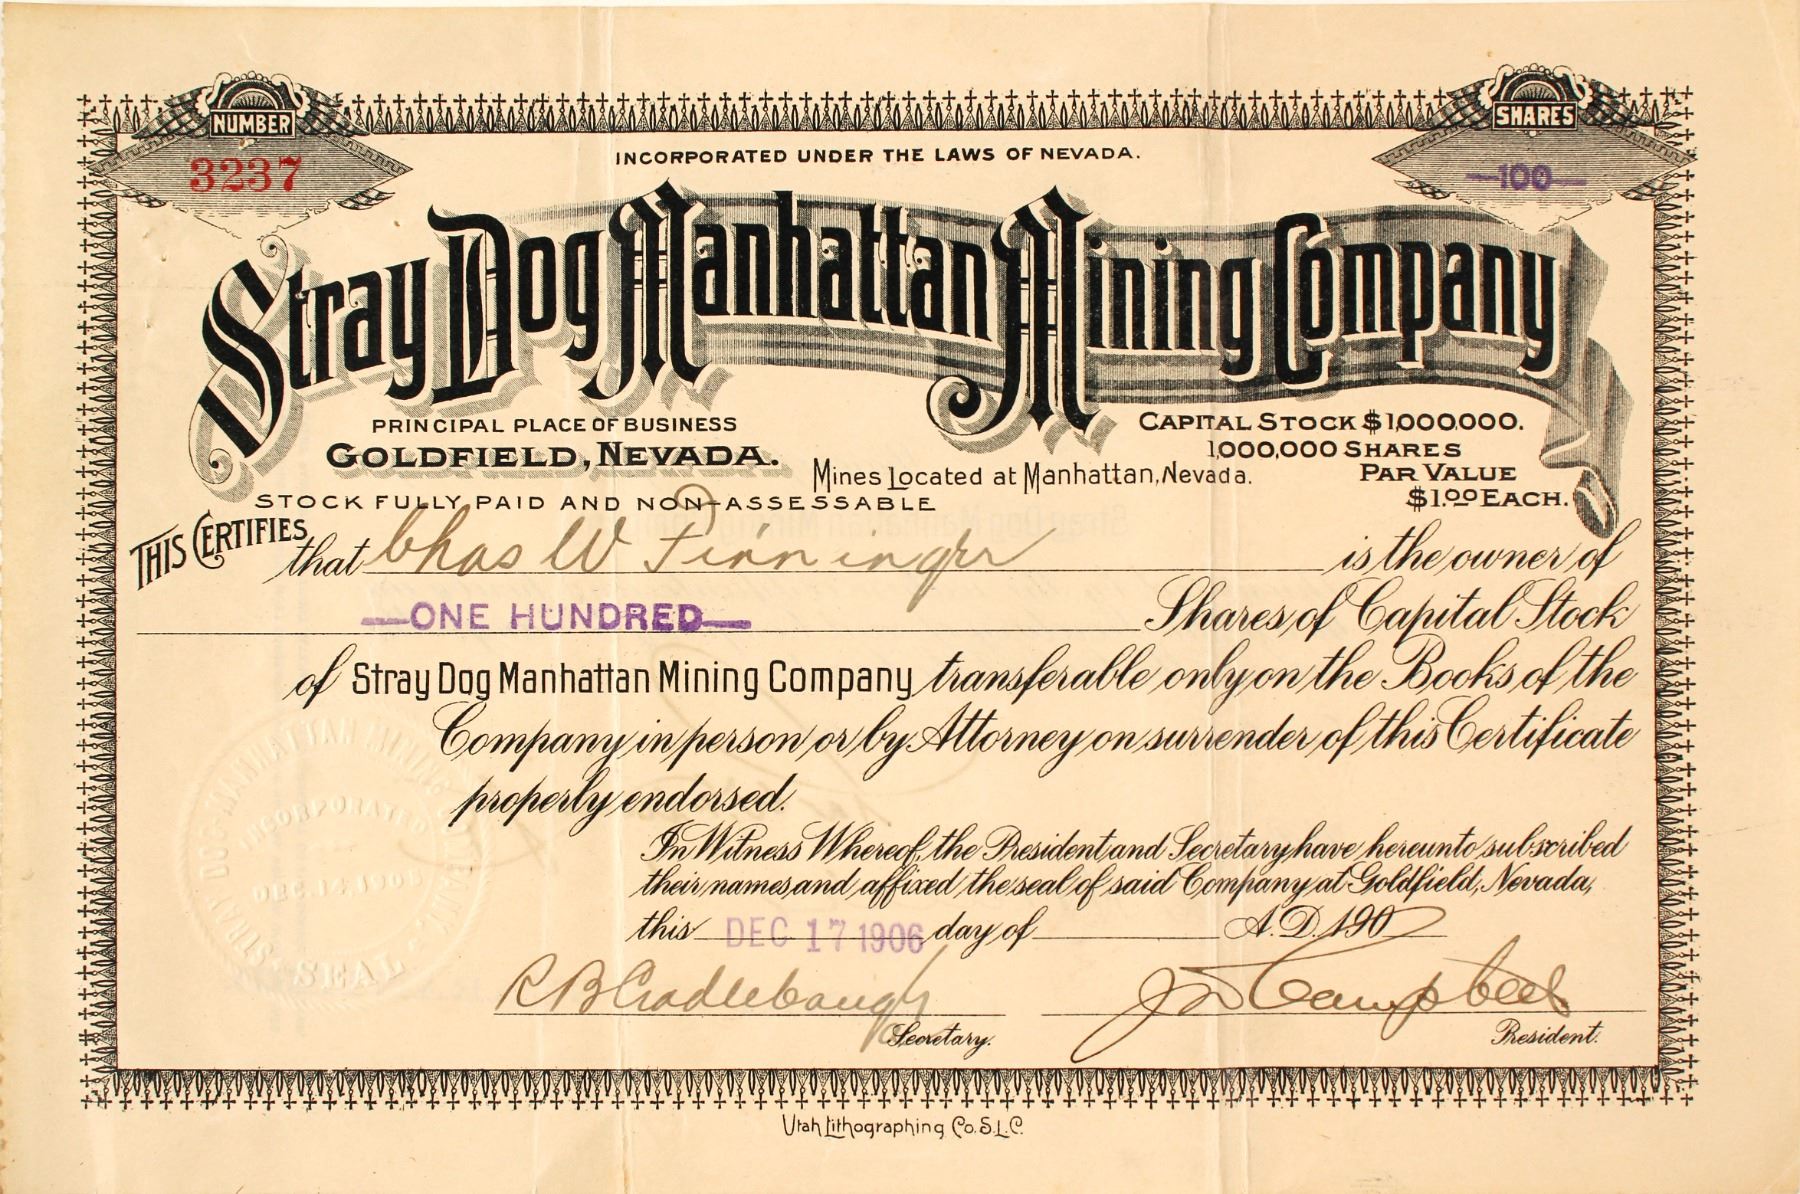 NUMBER
3237
SHARES
—100—
INCORPORATED UNDER THE LAWS OF NEVADA.
Stray Dog Manhattan Mining Company
PRINCIPAL PLACE OF BUSINESS
GOLDFIELD, NEVADA.
Mines Located at Manhattan, Nevada.
CAPITAL STOCK $1,000,000.
1,000,000 SHARES
PAR VALUE
$1.00 EACH.
STOCK FULLY PAID AND NON-ASSESSABLE
THIS CERTIFIES that Chas W is the owner of
—ONE HUNDRED— Shares of Capital Stock
of Stray Dog Manhattan Mining Company transferable only on the Books of the
Company in person or by Attorney on surrender of this Certificate
properly endorsed.
In Witness Whereof, the President and Secretary have hereunto subscribed
their names and affixed the seal of said Company at Goldfield, Nevada,
this DEC 17 1906 day of A.D. 190
R B Cradlebaugh
Secretary.
Campbell
President.
STRAY DOG MANHATTAN MINING COMPANY
INCORPORATED
DEC. 14 1905
SEAL
Utah Lithographing Co. S.L.C.